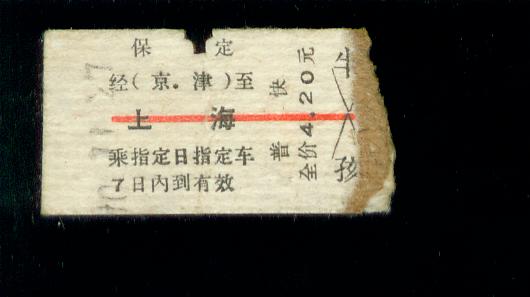 保 定
经(京.津)至
上 海
乘指定日指定车
7日内到有效
普 快
全价4.20元
上
孩